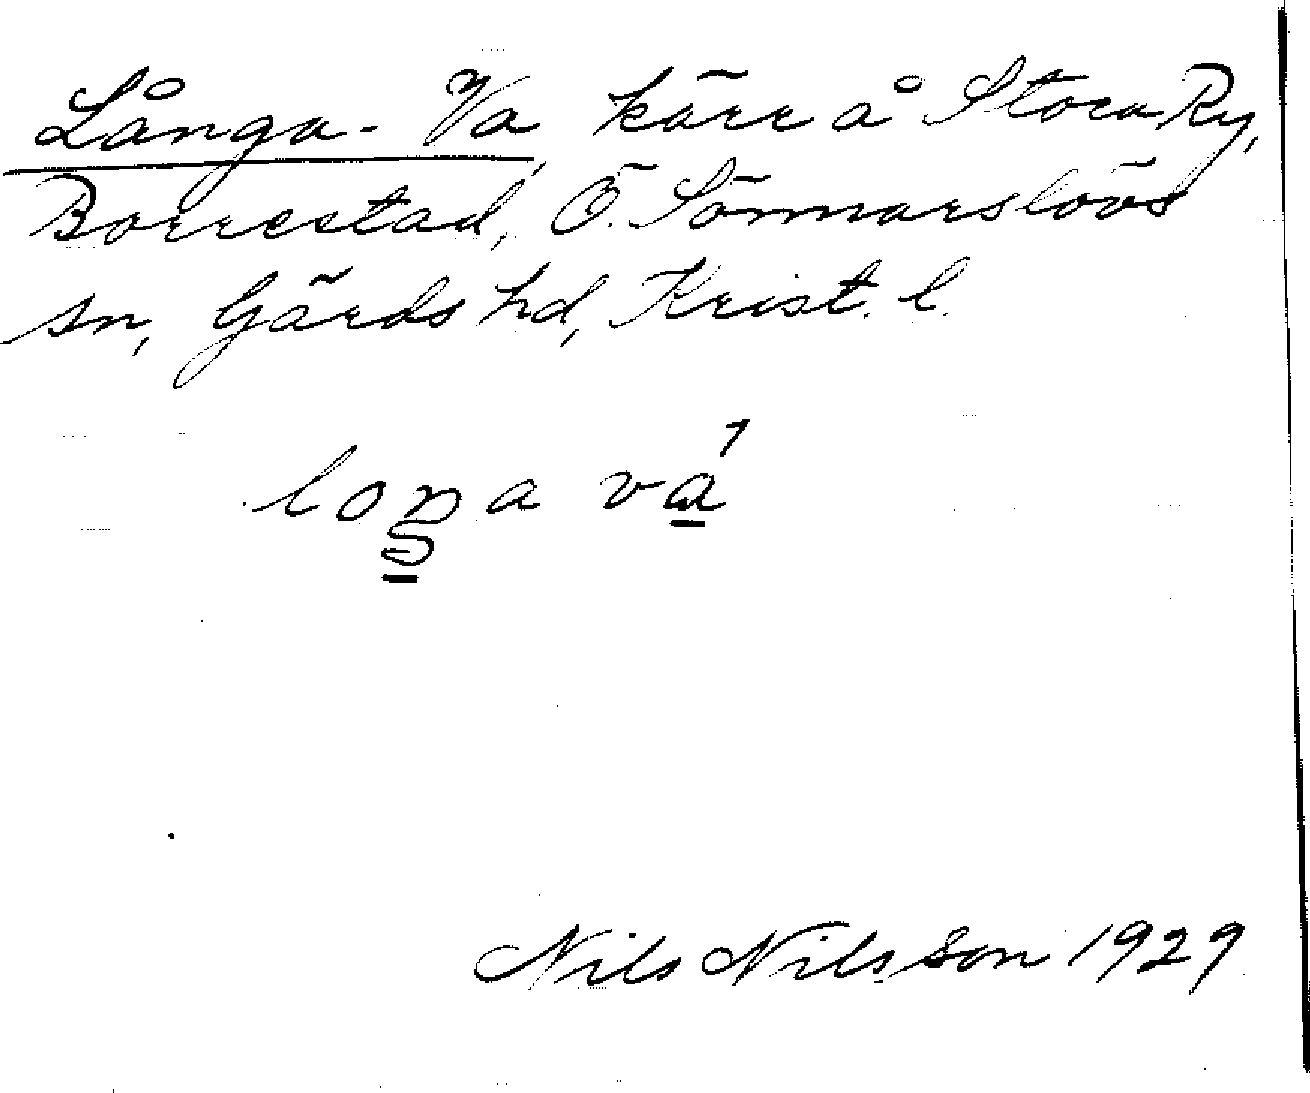 Långa-Va, kärr å Stora Ry,
Borrestad, Ö. Sönnarslövs
sn, Gärds hd, Krist. l.
loŋa vá
Nils Nilsson 1929